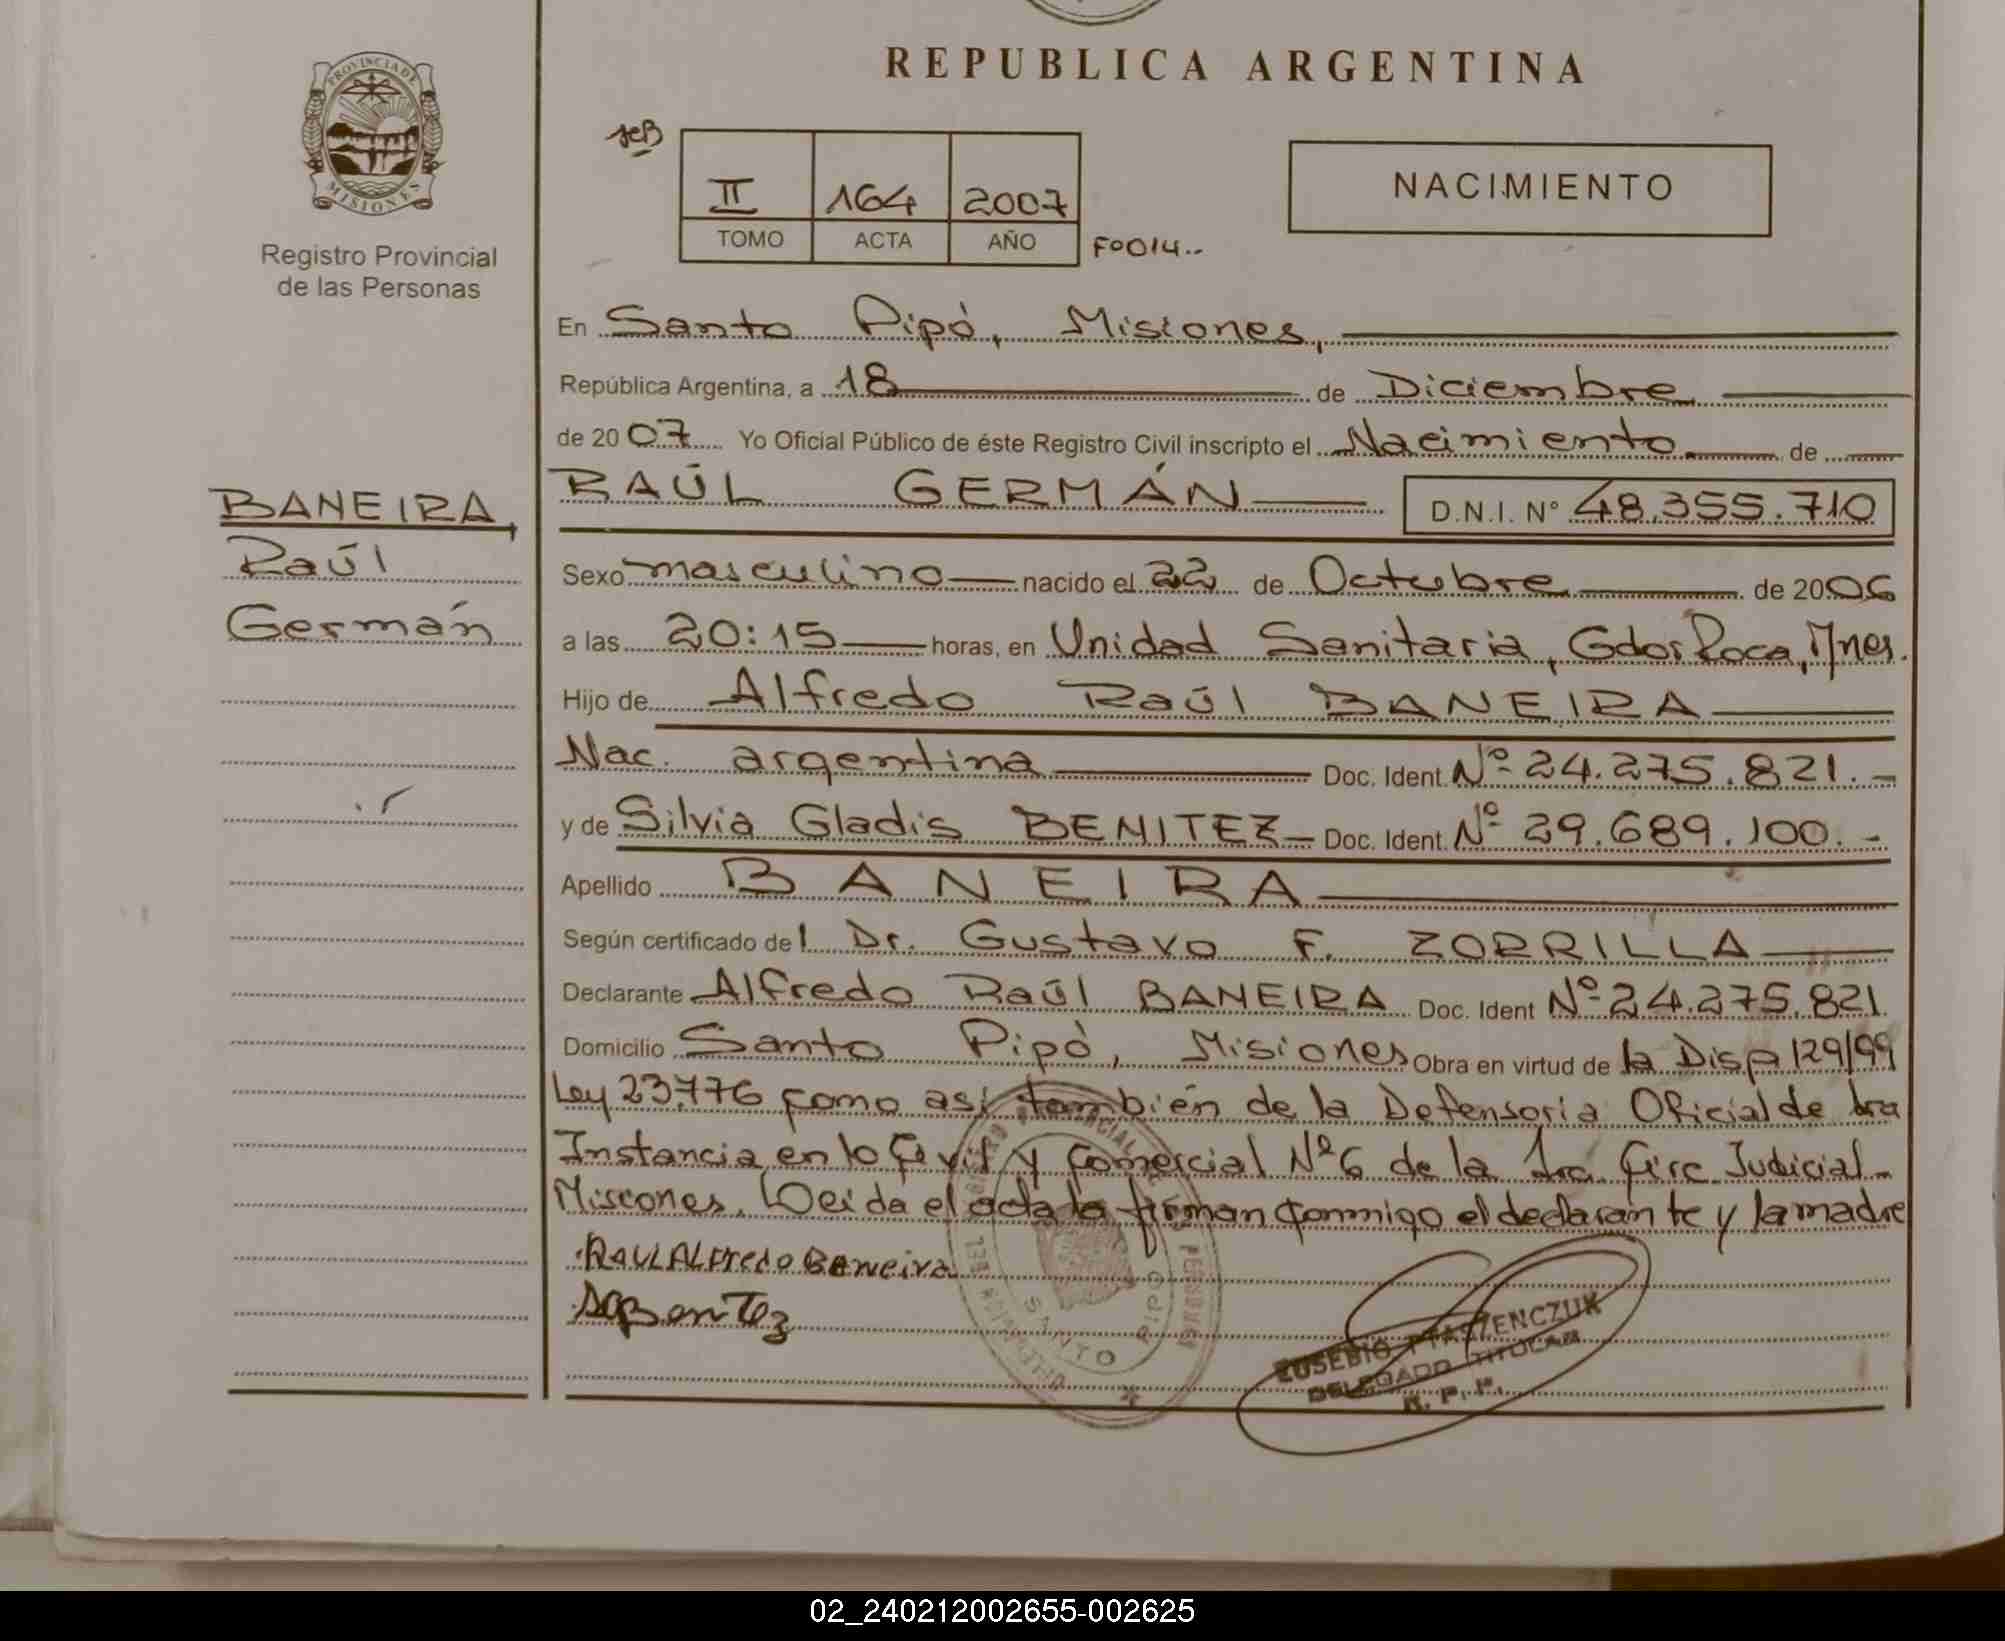 PROVINCIA DE
MISIONES
Registro Provincial
de las Personas
REPUBLICA ARGENTINA
II 164 2007
TOMO ACTA AÑO Fº014..
NACIMIENTO
En Santo Pipó, Misiones,
República Argentina, a 18 de Diciembre
de 2007 Yo Oficial Público de éste Registro Civil inscripto el Nacimiento de
RAÚL GERMÁN D.N.I. Nº 48.355.710
BANEIRA,
Raúl
Germán
Sexo masculino nacido el 22 de Octubre de 2006
a las 20:15 horas, en Unidad Sanitaria, Gdor Roca, Mnes.
Hijo de Alfredo Raúl BANEIRA
Nac. argentina Doc. Ident. Nº 24.275.821.-
y de Silvia Gladis BENITEZ Doc. Ident. Nº 29.689.100.-
Apellido BANEIRA
Según certificado del Dr. Gustavo F. ZORRILLA
Declarante Alfredo Raúl BANEIRA Doc. Ident Nº 24.275.821
Domicilio Santo Pipó, Misiones Obra en virtud de la Disp 129/99
Ley 23.776 como así también de la Defensoria Oficial de 1ra
Instancia en lo Civil y Comercial Nº 6 de la 1ra. Circ. Judicial-
Misiones. Leida el acta la firman conmigo el declarante y la madre
RAUL ALfredo Baneira
SGBenitez
SANTO PIPO
EUSEBIO PTASZENCZUK
DELEGADO TITULAR
R. P. P.
02_240212002655-002625